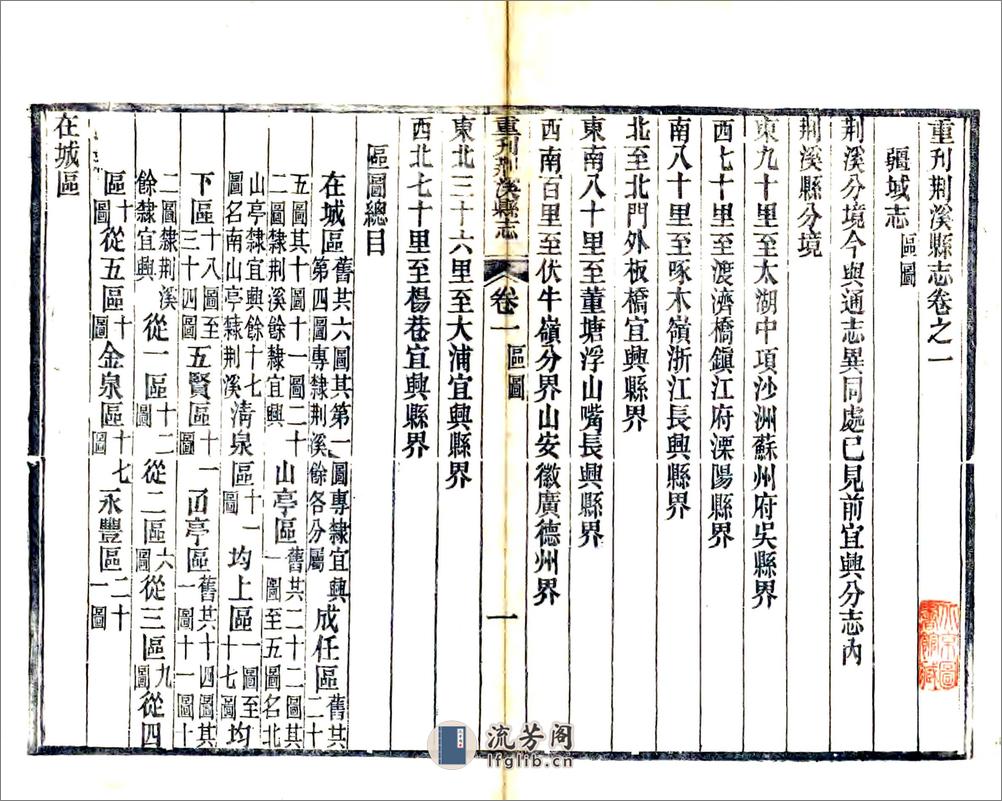 重刊荆溪縣志卷之一
疆域志 區圖
荆溪分境今與通志異同處已見前宜興分志內
荆溪縣分境
東九十里至太湖中項沙洲蘇州府吳縣界
西七十里至渡濟橋鎮江府溧陽縣界
南八十里至啄木嶺浙江長興縣界
北至北門外板橋宜興縣界
東南八十里至董塘浮山嘴長興縣界
西南百里至伏牛嶺分界山安徽廣德州界
重刊荆溪縣志 卷一 區圖 一
東北三十六里至大浦宜興縣界
西北七十里至楊巷宜興縣界
區圖總目
在城區舊共六圖其第一圖專隸宜興第四圖專隸荆溪餘各分屬 成任區舊共二十
五圖其十圖十一圖二十二圖隸荆溪餘隸宜興 山亭區舊共二十二圖其一圖至五圖名北
山亭隸宜興餘十七圖名南山亭隸荆溪 清泉區十一圖 均上區一圖至十七圖 均
下區十八圖至三十四圖 五賢區十一圖 亭區舊共十四圖其一圖十一圖十
二圖隸荆溪餘隸宜興 從一區十二圖 從二區六圖 從三區九圖 從四
區十圖 從五區十圖 金泉區十七圖 永豐區二十一圖
在城區
流芳阁
lfglib.cn